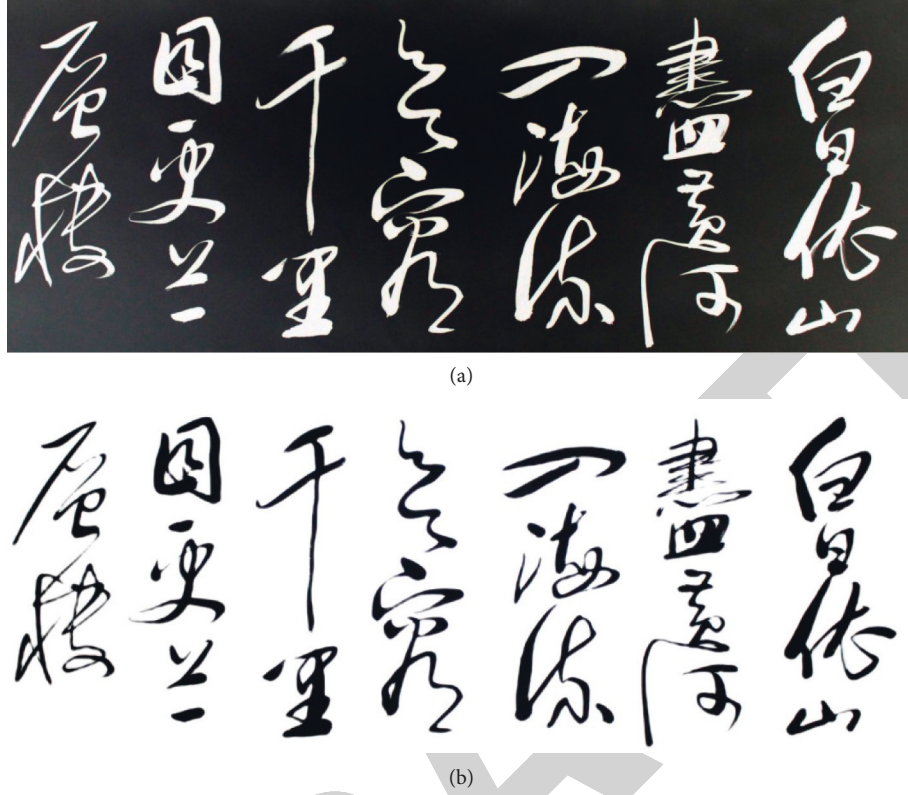 白日依山
盡黃河
入海流
欲窮
千里
目更上一
層樓
(a)
白日依山
盡黃河
入海流
欲窮
千里
目更上一
層樓
(b)